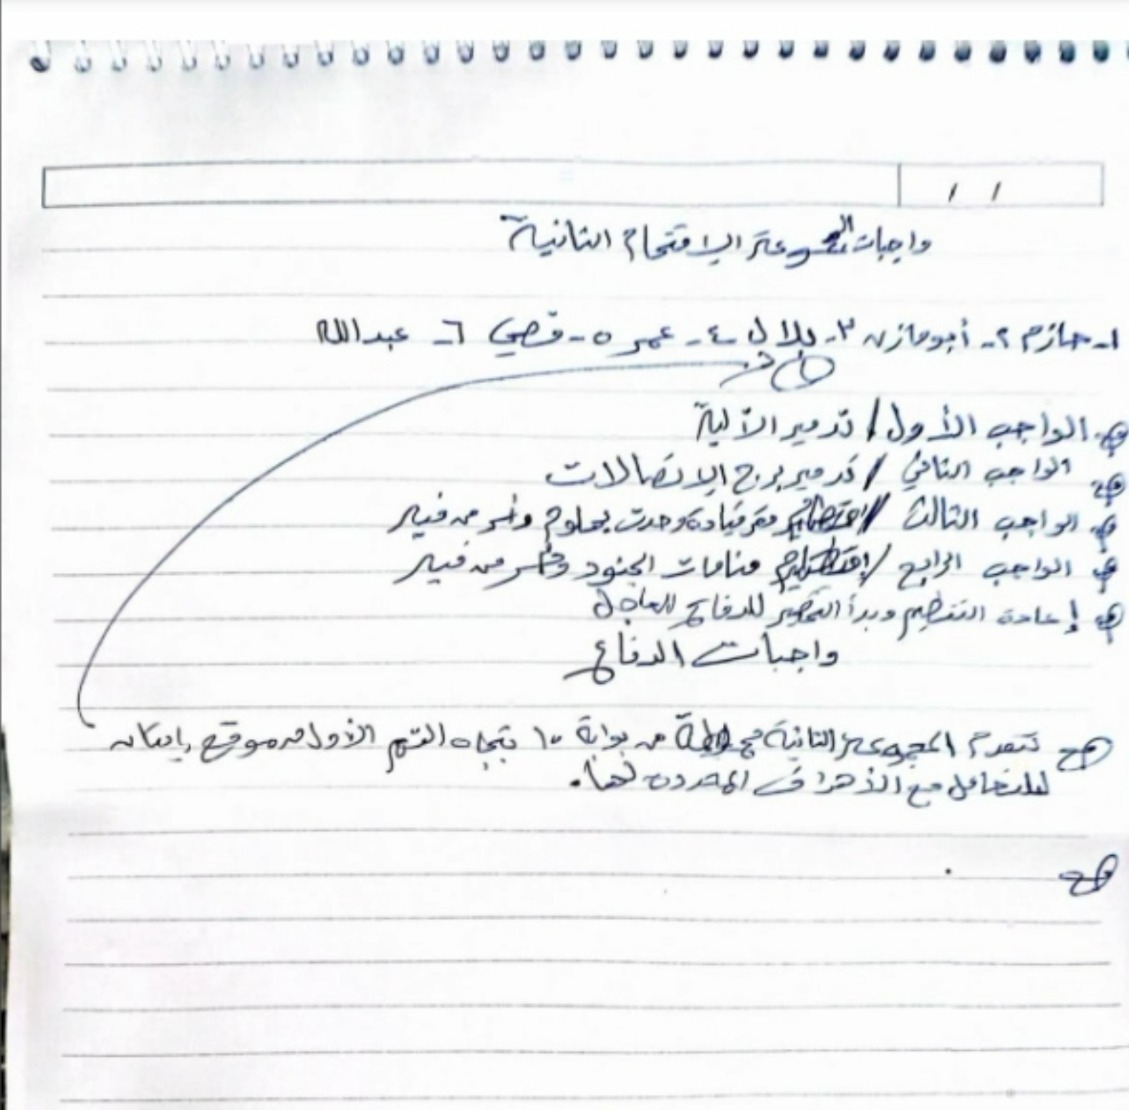 / /
واجبات المجموعة الإقتحام الثانية
١- حازم ٢- أبو مازن ٣- بلال ٤- عمر ٥- قصي ٦- عبدالله
الواجب الأول / تدمير الآلية
الواجب الثاني / تدمير برج الإتصالات
الواجب الثالث / مقر قيادة وحدت من فيه
الواجب الرابع / منامات الجنود من فيه
إعادة التنظيم وبدأ التحضير للدفاع العاجل
واجبات الدفاع
تتقدم المجموعة الثانية من بوابة ١٠ بتجاه القسم الأول من موقع
للتعامل مع الأهداف المحددة لها.